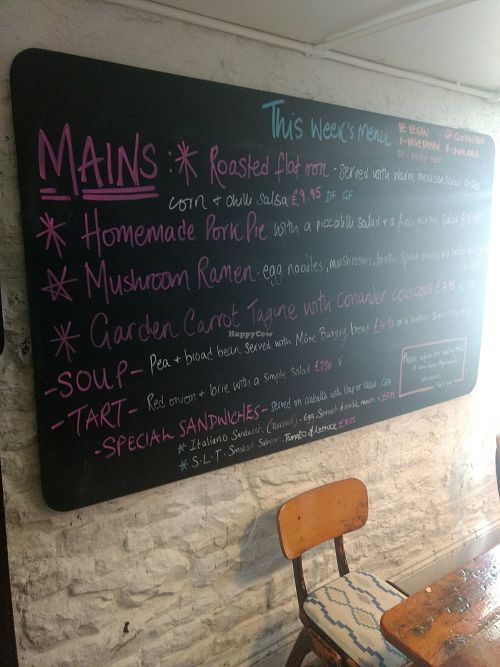 This Week's Menu
VE VEGAN
V-VEGETARIAN
DF - DAIRY FREE
MAINS: * Roasted flat iron - served with warm mexican salad, grilled
corn + chilli salsa £9.95 DF GF
* Homemade Pork Pie with a piccalilli salad + a fresh garden salad £7.95
* Mushroom Ramen - egg noodles, mushrooms, broth, spring onions + a
* Garden Carrot Tagine with coriander couscous £7.95
HappyCow
- SOUP - Pea + broad bean served with Mâine Bakery bread £4.95 or a
- TART - Red onion + brie with a simple salad £7.50 V
- SPECIAL SANDWICHES - served on ciabatta with soup or salad GFA
* Italiano Sandwich (Toasted) - Egg, Spinach
* S.L.T - Smoked Salmon, Tomato & Lettuce
Please